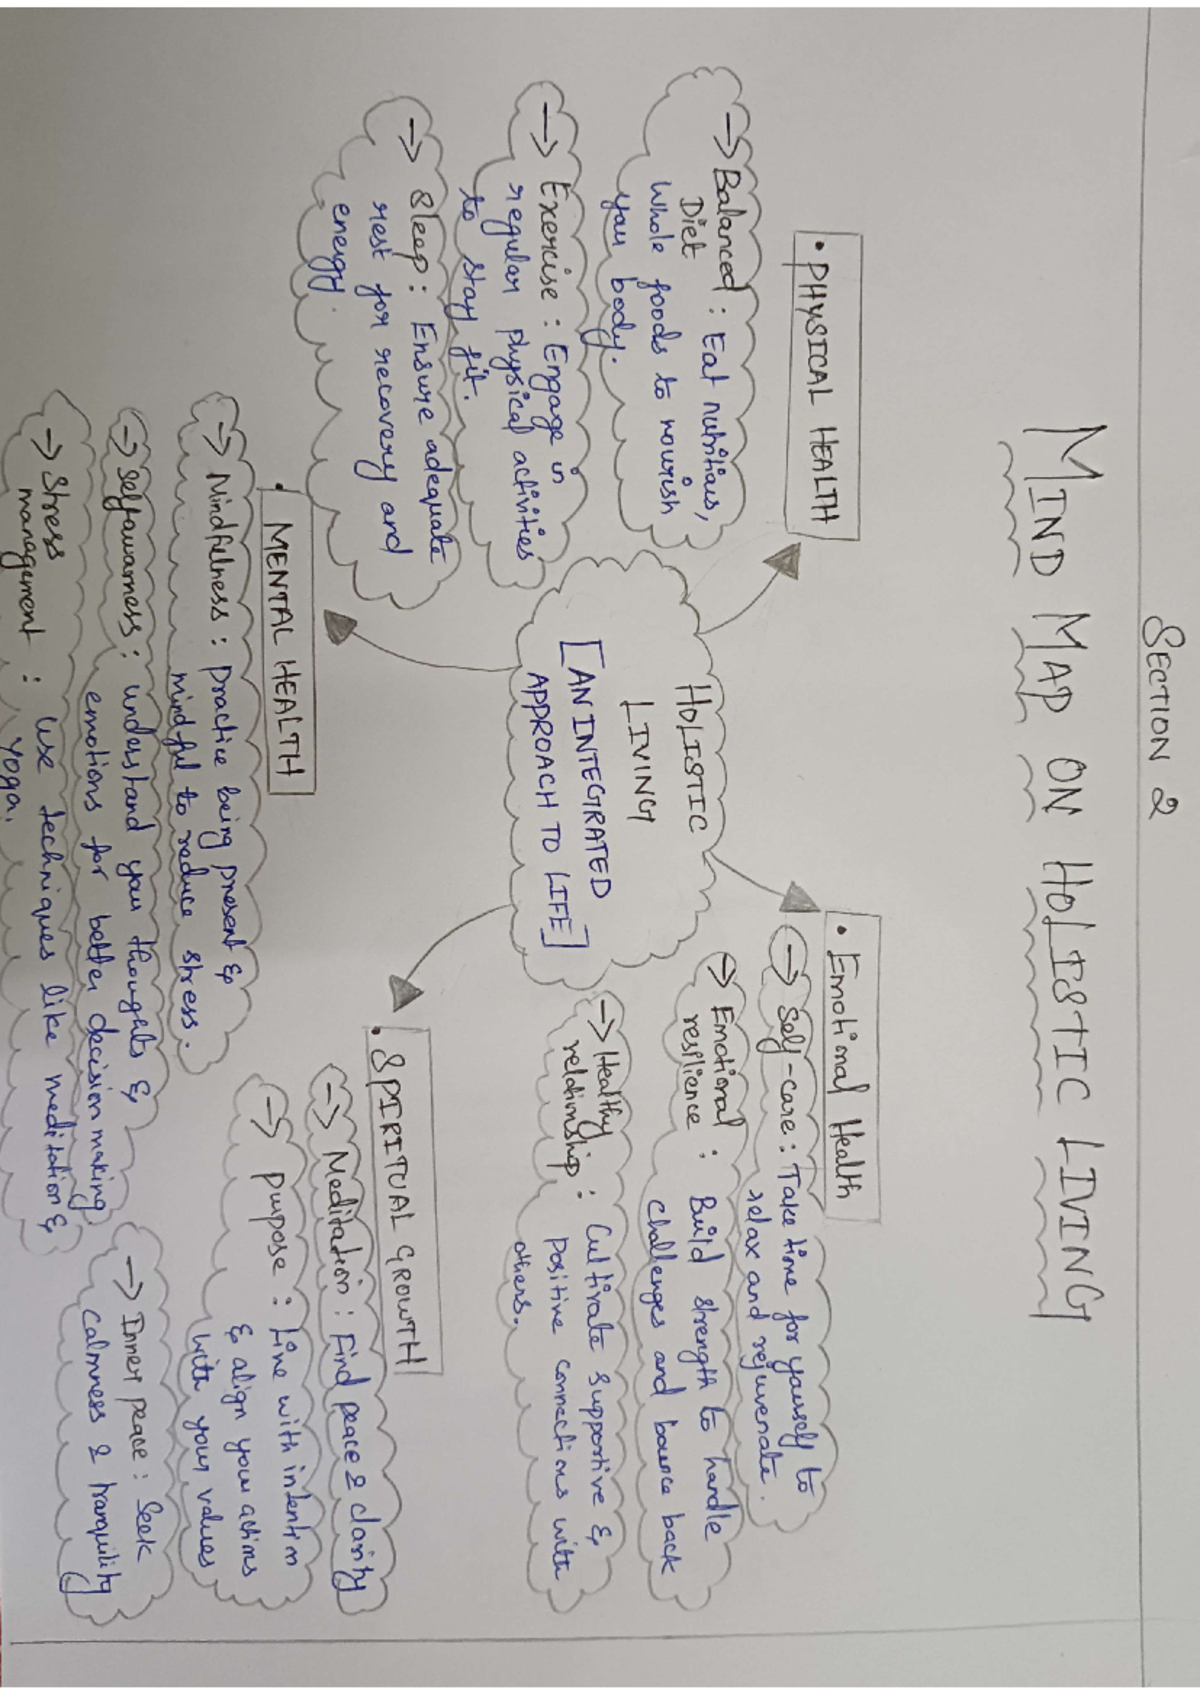 SECTION 2
MIND MAP ON HOLISTIC LIVING
• PHYSICAL HEALTH
→ Balanced : Eat nutritious,
Diet
Whole foods to nourish
you body.
→ Exercise : Engage in
regular physical activities
to stay fit.
→ Sleep : Ensure adequate
rest for recovery and
energy.
HOLISTIC
LIVING
[AN INTEGRATED
APPROACH TO LIFE]
• Emotional Health
→ Self-care : Take time for yourself to
relax and rejuvenate.
→ Emotional
resplience : Build strength to handle
challenges and bounce back
→ Healthy
relationship : Cultivate supportive &
positive connections with
others.
• MENTAL HEALTH
→ Mindfulness : Practice being present &
mindful to reduce stress.
→ Selfawarness : understand you thoughts &
emotions for better decision making
→ Stress
management : use techniques like meditation &
yoga.
• SPIRITUAL GROWTH
→ Meditation : Find peace & clarity
→ Purpose : Line with intention
& align your actions
with your values
→ Inner peace : Seek
calmness & tranquility